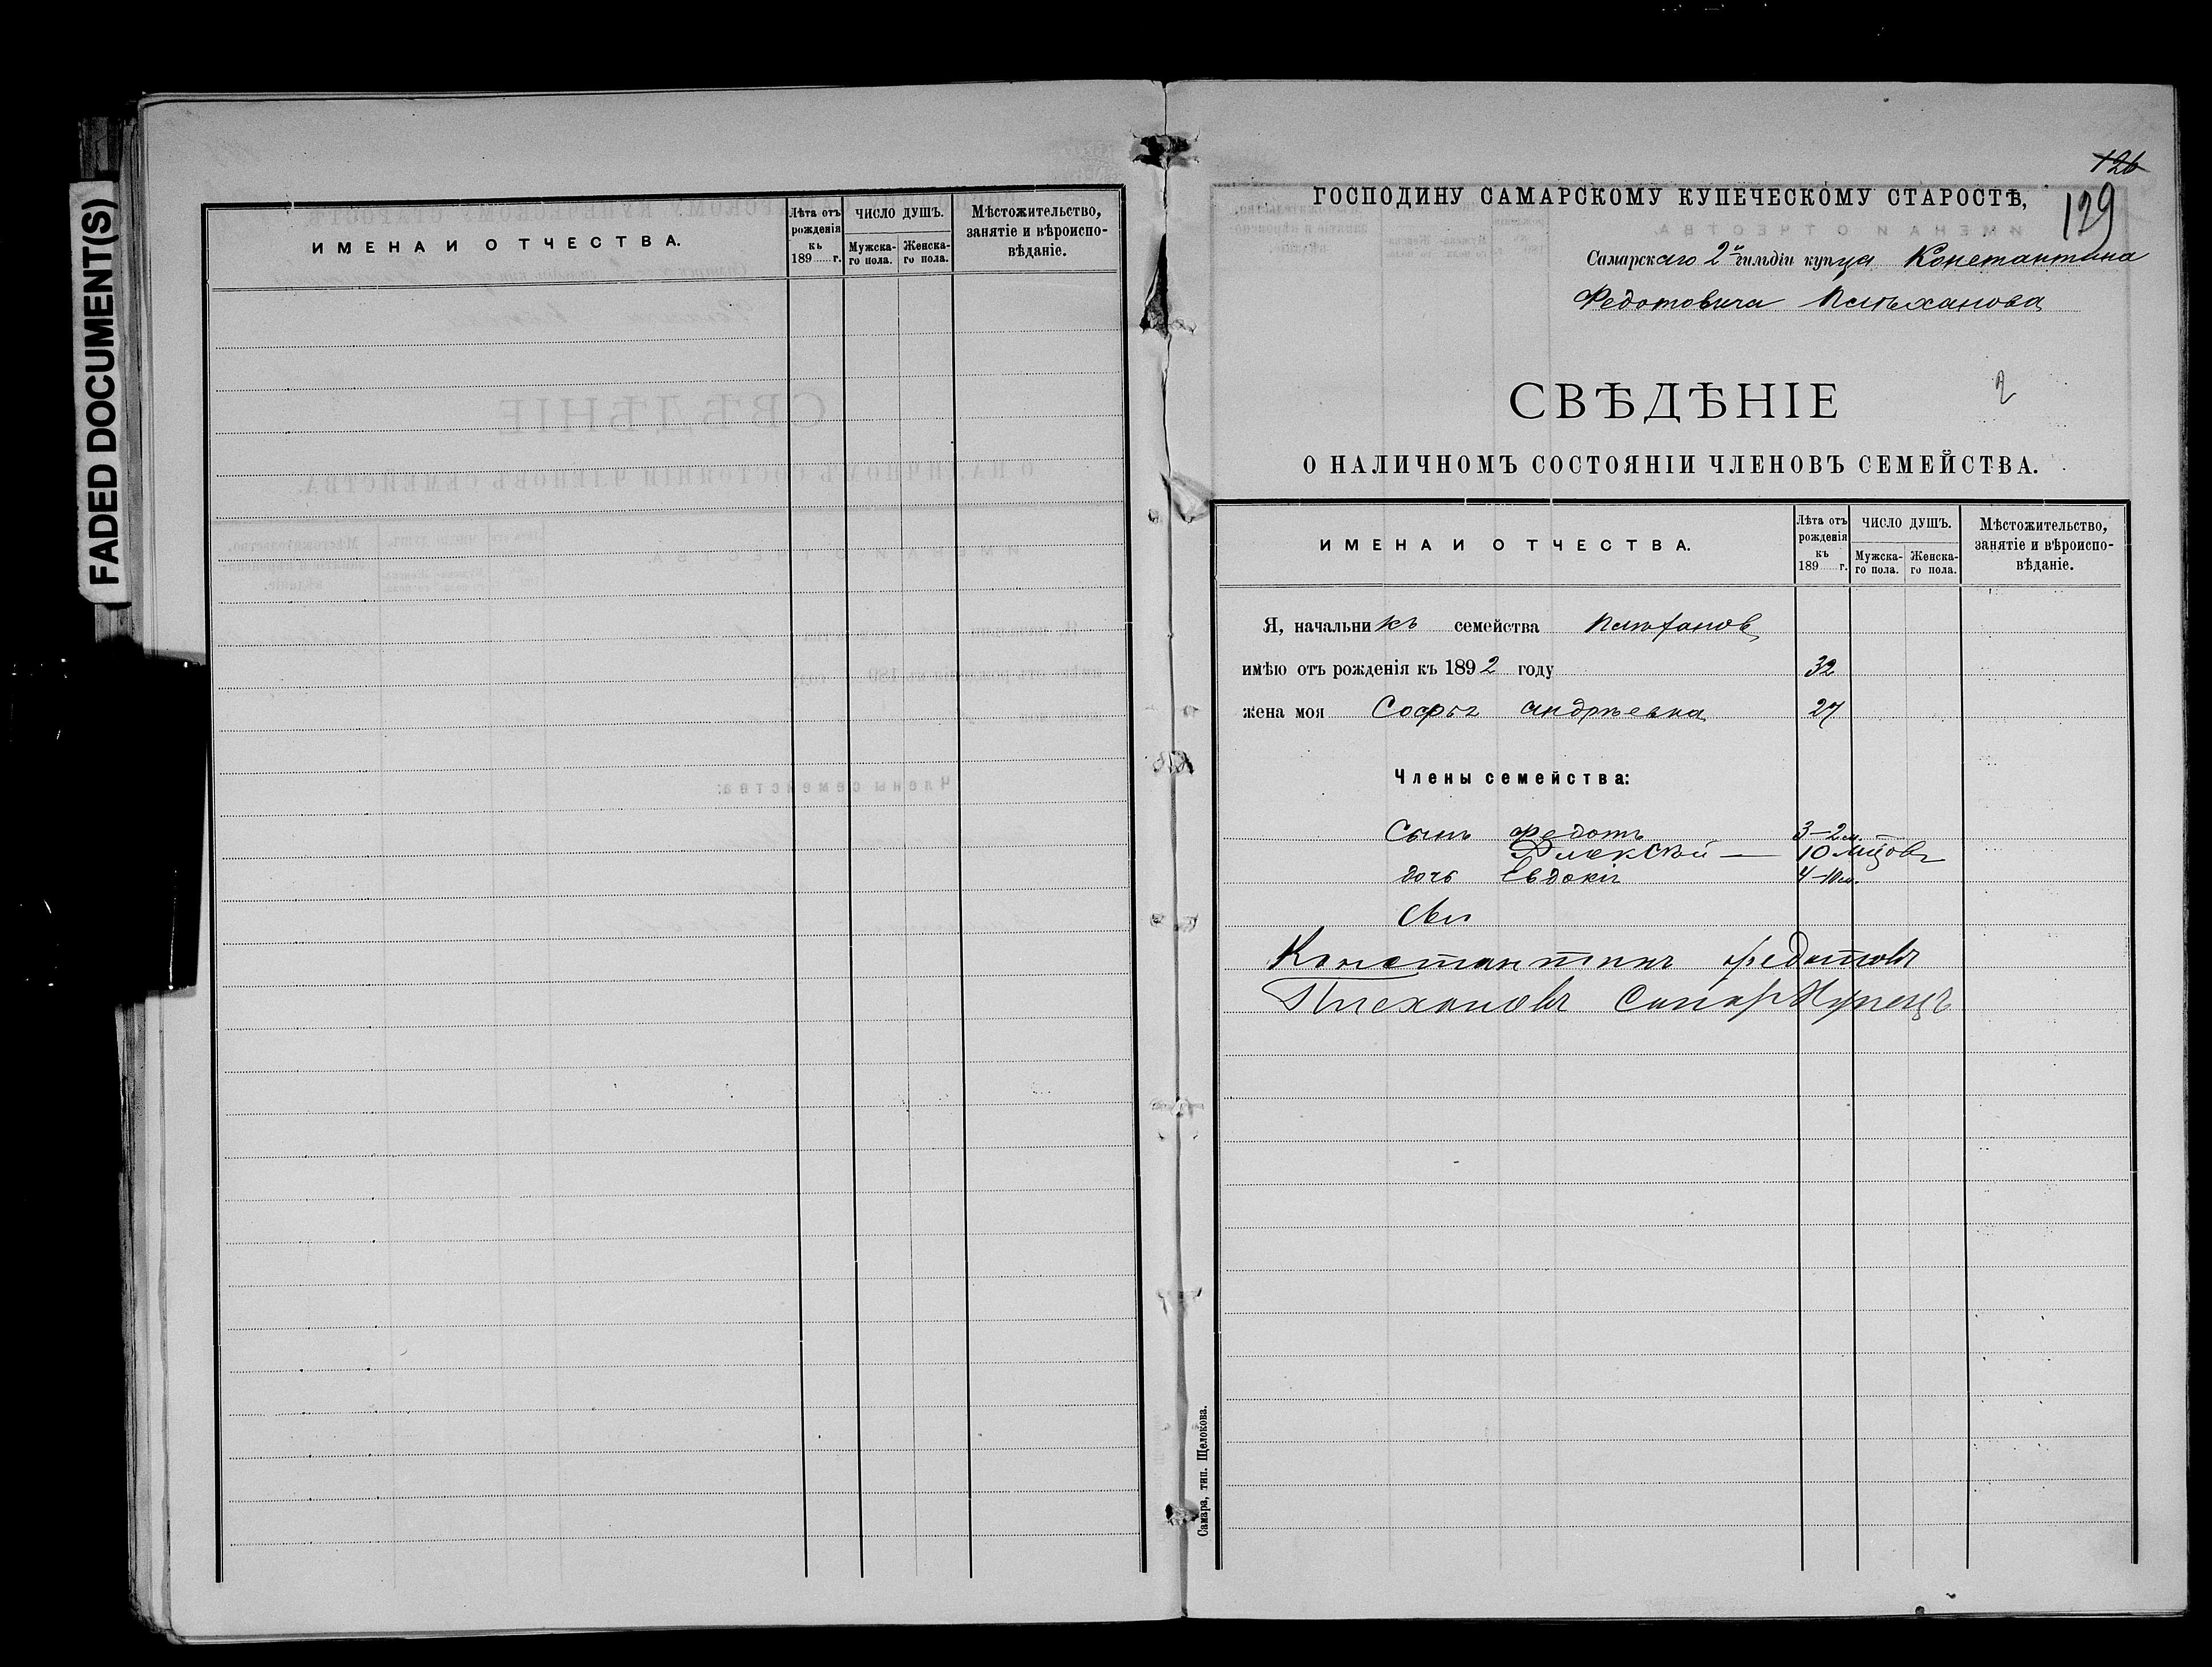 FADED DOCUMENT(S)
ИМЕНА И ОТЧЕСТВА.
Лѣта отъ рожденія къ 189 г.
ЧИСЛО ДУШЪ.
Мужска-го пола.
Женска-го пола.
Мѣстожительство, занятіе и вѣроиспо-вѣданіе.
126
129
ГОСПОДИНУ САМАРСКОМУ КУПЕЧЕСКОМУ СТАРОСТѢ,
Самарскаго 2й гильдіи купца Константина
Федотовича Плѣханова
СВѢДѢНІЕ
2
О НАЛИЧНОМЪ СОСТОЯНІИ ЧЛЕНОВЪ СЕМЕЙСТВА.
ИМЕНА И ОТЧЕСТВА.
Лѣта отъ рожденія къ 189 г.
ЧИСЛО ДУШЪ.
Мужска-го пола.
Женска-го пола.
Мѣстожительство, занятіе и вѣроиспо-вѣданіе.
Я, начальникъ семейства Плѣханов
имѣю отъ рожденія къ 1892 году 32
жена моя Софья Андрѣевна 27
Члены семейства:
Сынъ Федотъ 3-2 м.
10 мцовъ
дочь Евдокія 4-10 м.
Константинъ Федотовъ
Плехановъ Самар Купецъ
Самара, тип. Щелокова.